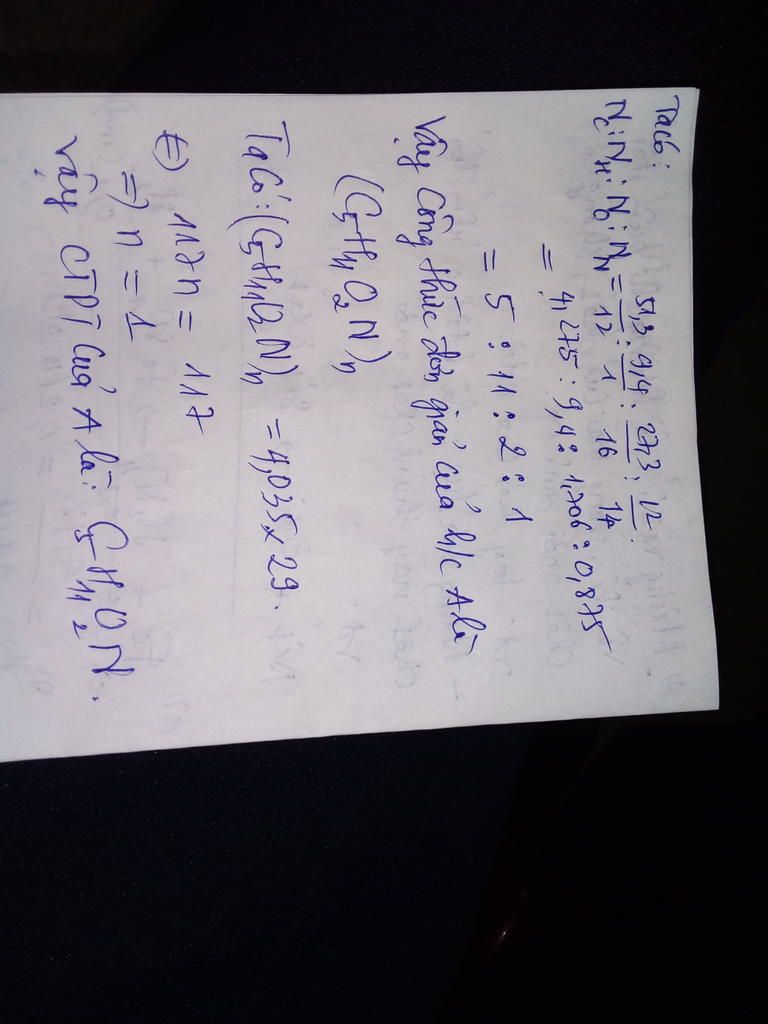 Ta có:
N_C : N_H : N_O : N_N = 51,3/12 : 9,4/1 : 27,3/16 : 12/14
= 4,275 : 9,4 : 1,706 : 0,875
= 5 : 11 : 2 : 1
Vậy công thức đơn giản của h/c A là
(C₅H₁₁O₂N)ₙ
Ta có: (C₅H₁₁O₂N)ₙ = 4,035 x 29.
⇔ 117n = 117
⇒ n = 1
Vậy CTPT của A là: C₅H₁₁O₂N.